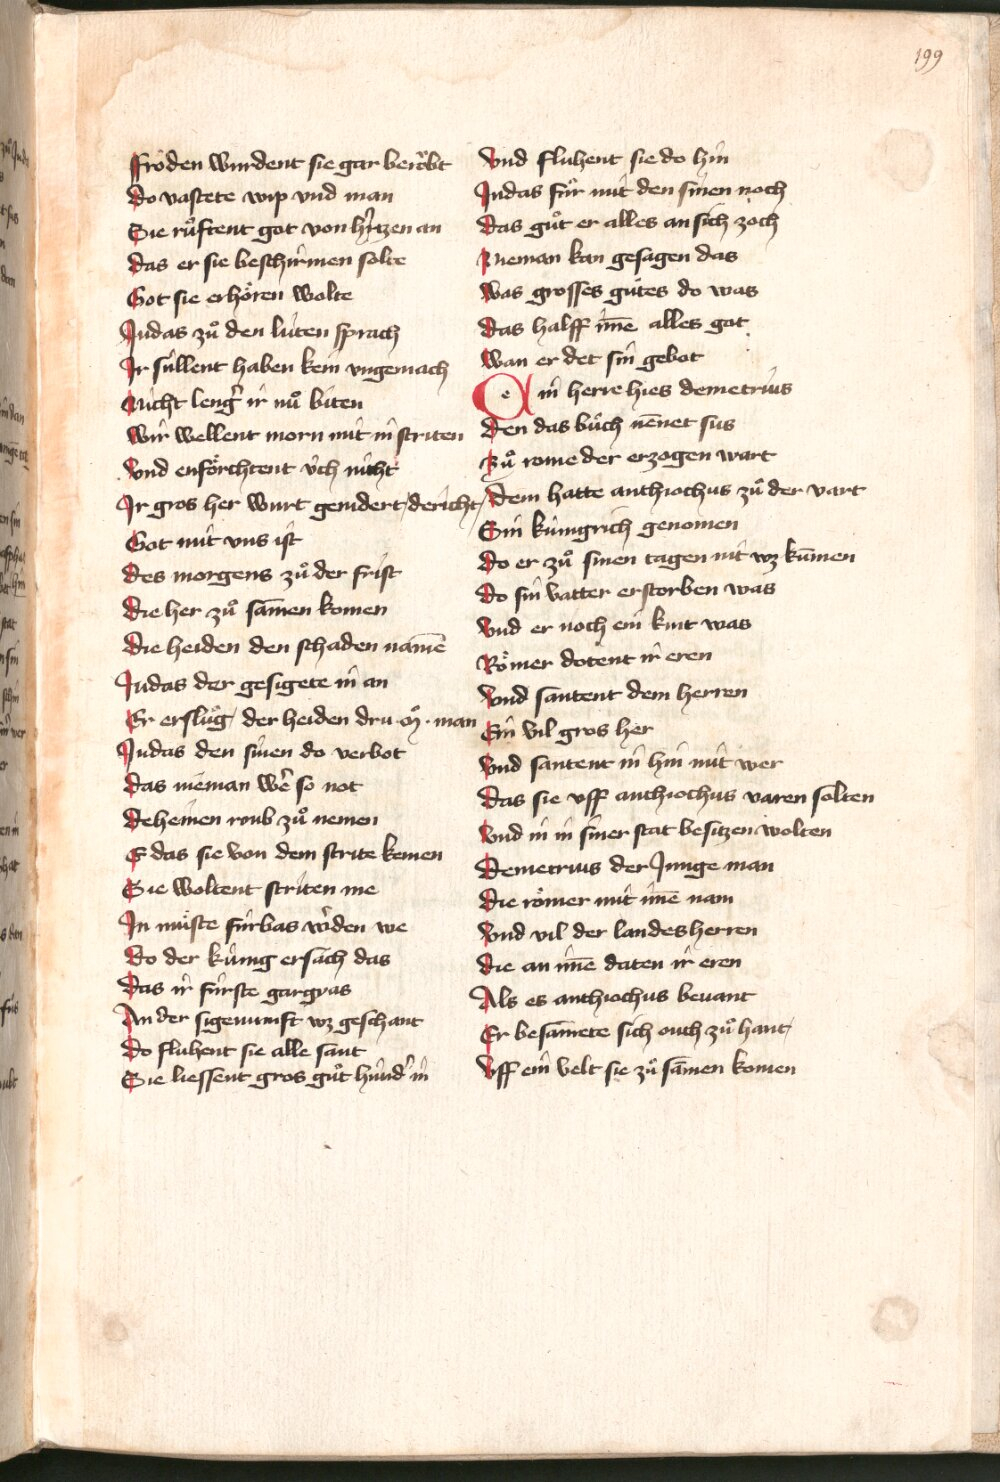 199
Fröden wurdent sie gar beröbt
Do vastete wip vnd man
Sie růftent got von h'tzen an
Das er sie beschirmen solte
Got sie erhören wolte
Judas zů den luten sprach
Ir sullent haben kein vngemach
Nicht leng' ir nů biten
Wir wellent morn mit in striten
Vnd enförchtent üch nicht
Ir gros her wurt genidert dericht
Got mit vns ist
Des morgens zů der frist
Die her zů samen komen
Die heiden den schaden namē
Judas der gesigete in an
Er erslůg der heiden dru . m . man
Judas den sinen do verbot
Das nieman we' so not
Deheinen roub zů nemen
E das sie von dem strite kemen
Sie woltent striten me
In můste fürbas w'den we
Do der künig ersach das
Das ir fürste gargyas
An der sigenunft wz geschant
Do fluhent sie alle sant
Sie liessent gros gůt hind' in
Vnd fluhent sie do hin
Judas fůr mit den sinen noch
Das gůt er alles an sich zoch
Nieman kan gesagen das
Was grosses gůtes do was
Das halff imē alles got
Wan er det sin gebot
Ein herre hies demetrius
Den das bůch nēnet sus
Zů rome der erzogen wart
Dem hatte anthiochus zů der vart
Sin künigrich genomen
Do er zů sinen tagen nit wz kūmen
Do sin vatter erstorben was
Vnd er noch ein kint was
Römer dotent ir eren
Vnd santent dem herren
Ein vil gros her
Vnd santent in hin mit wer
Das sie vff anthiochus varen solten
Vnd in in siner stat besitzen wolten
Demetrius der Junge man
Die römer mit imē nam
Vnd vil der landesherren
Die an imē daten ir eren
Als es anthiochus bevant
Er besamete sich ouch zů hant
Vff ein velt sie zů samen komen